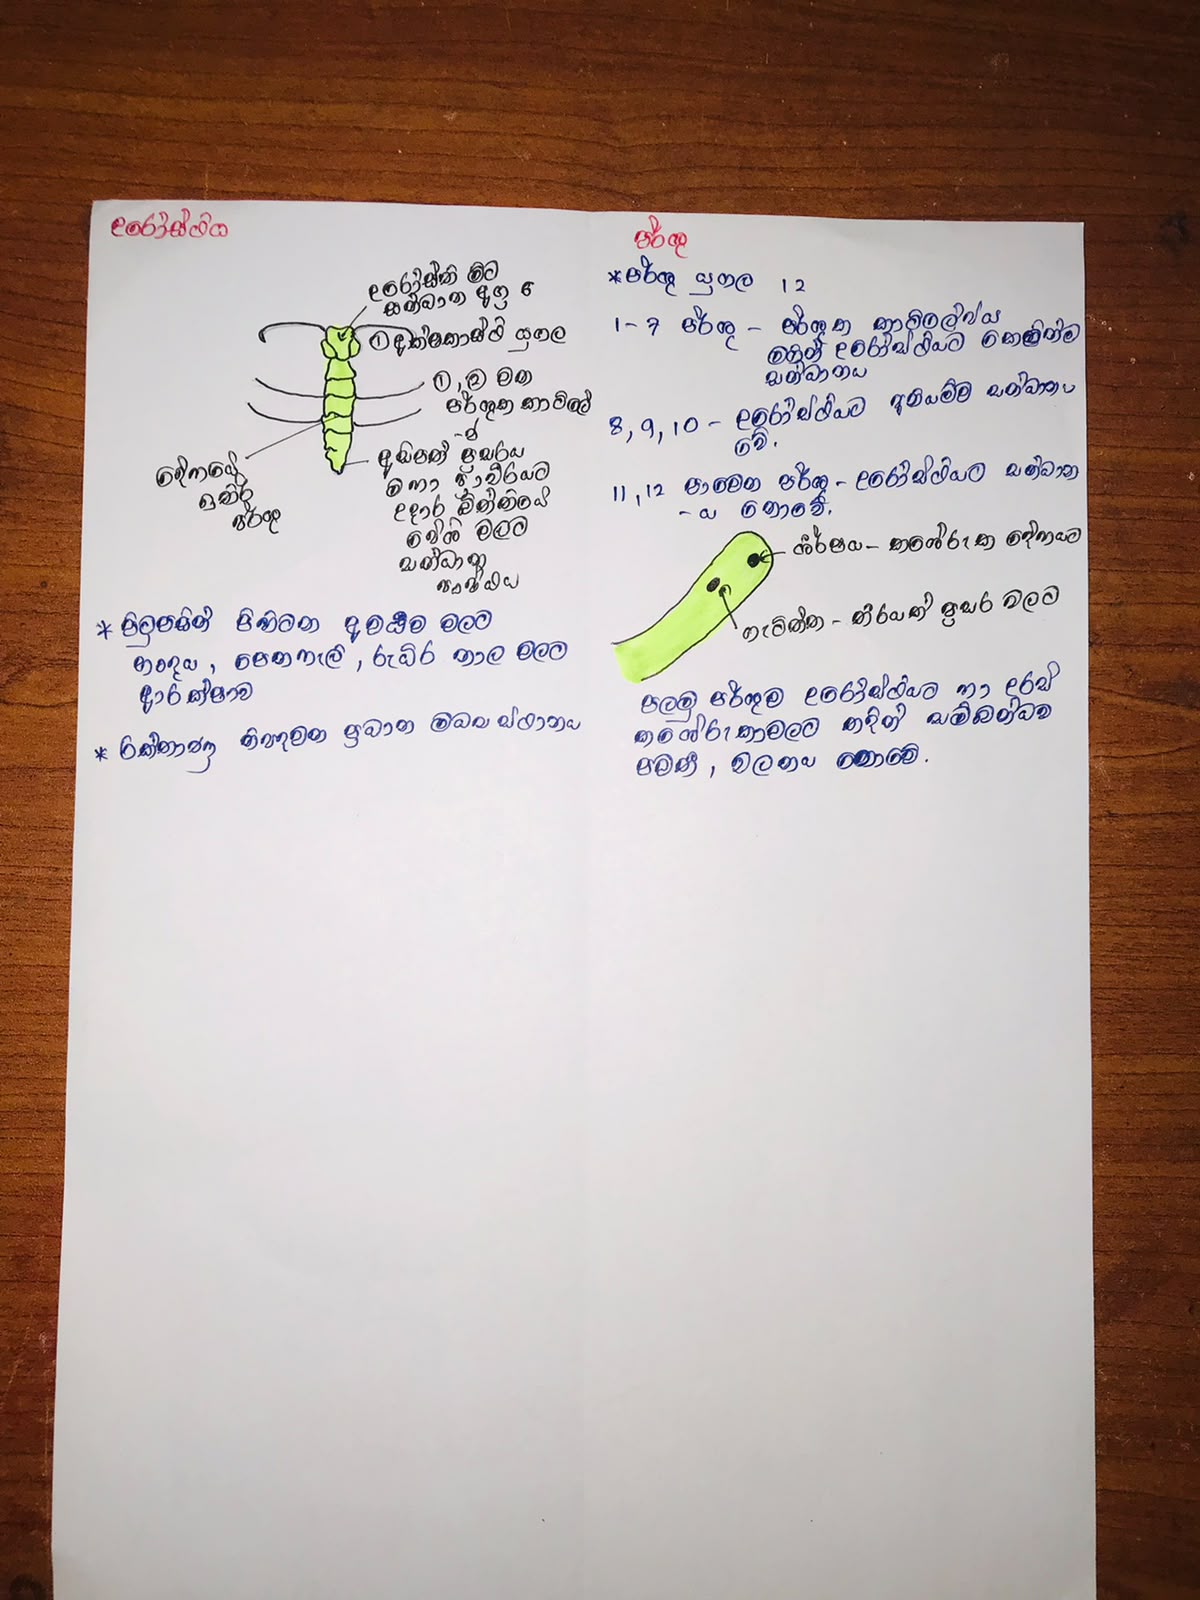 උරෝස්ථිය
උරෝස්ති මිට
සන්ධාන අග්‍ර 6
① අක්ෂකාස්ථි යුගල
①, ② වන
පර්ශුක කාටිලේ
-ජ
අසිපත් ප්‍රසරය
මහා ප්‍රාචීරයට
උදර බිත්තියේ
පේශි වලට
සන්ධාන
පෘෂ්ඨය
දේහයේ
ඉතිරි
පර්ශු
* පිටුපසින් පිහිටන අවයව වලට
හෘදය, පෙනහැලි, රුධිර නාල වලට
ආරක්ෂාව
* රක්තාණු නිපදවන ප්‍රධාන මධ්‍යස්ථානය
පර්ශු
* පර්ශු යුගල 12
1-7 පර්ශු - පර්ශුක කාටිලේජය
මගින් උරෝස්ථියට කෙළින්ම
සන්ධානය
8, 9, 10 - උරෝස්ථියට අනියම්ව සන්ධානය
වේ.
11, 12 පාවෙන පර්ශු - උරෝස්ථියට සන්ධාන
-ය නොවේ.
ශීර්ෂය - කශේරුක දේහයට
ගැටිත්ත - තීර්යක් ප්‍රසර වලට
පලමු පර්ශුව උරෝස්ථියට හා උරස්
කශේරුකාවලට තදින් සම්බන්ධව
පමණි, චලනය නොවේ.